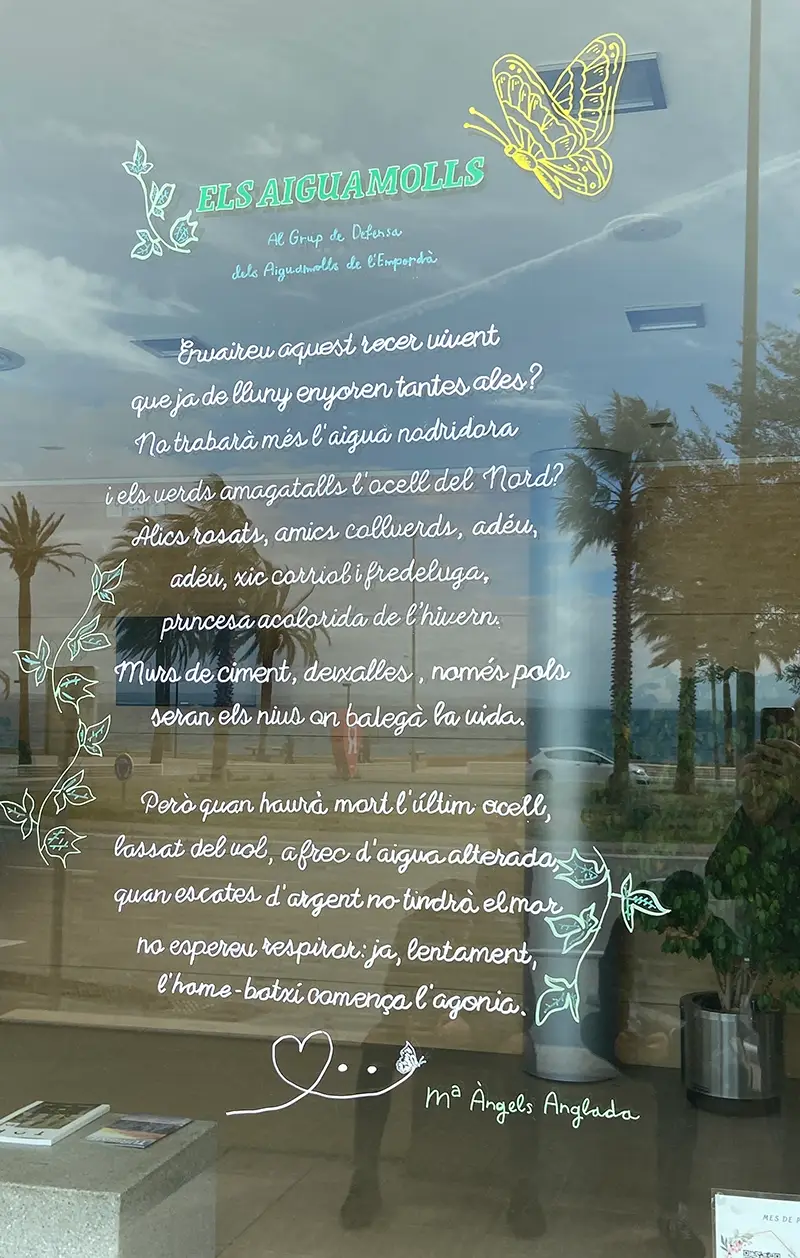 ELS AIGUAMOLLS
Al Grup de Defensa
dels Aiguamolls de l'Empordà
Envaireu aquest recer vivent
que ja de lluny enyoren tantes ales?
No trobarà més l'aigua nodridora
i els verds amagatalls l'ocell del Nord?
Àlics rosats, amics collverds, adéu,
adéu, xic corriol i fredeluga,
princesa acolorida de l'hivern.
Murs de ciment, deixalles, només pols
seran els nius on balegà la vida.
Però quan haurà mort l'últim ocell,
lassat del vol, a frec d'aigua alterada,
quan escates d'argent no tindrà el mar
no espereu respirar: ja, lentament,
l'home-botxí comença l'agonia.
Mª Àngels Anglada
MES DE